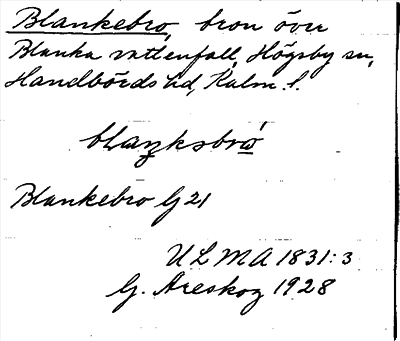 Blankebro, bron över
Blanka vattenfall, Högsby sn,
Handbörds hd, Kalm. l.
Blankebro G 21
ULMA 1831:3
G. Areskog 1928